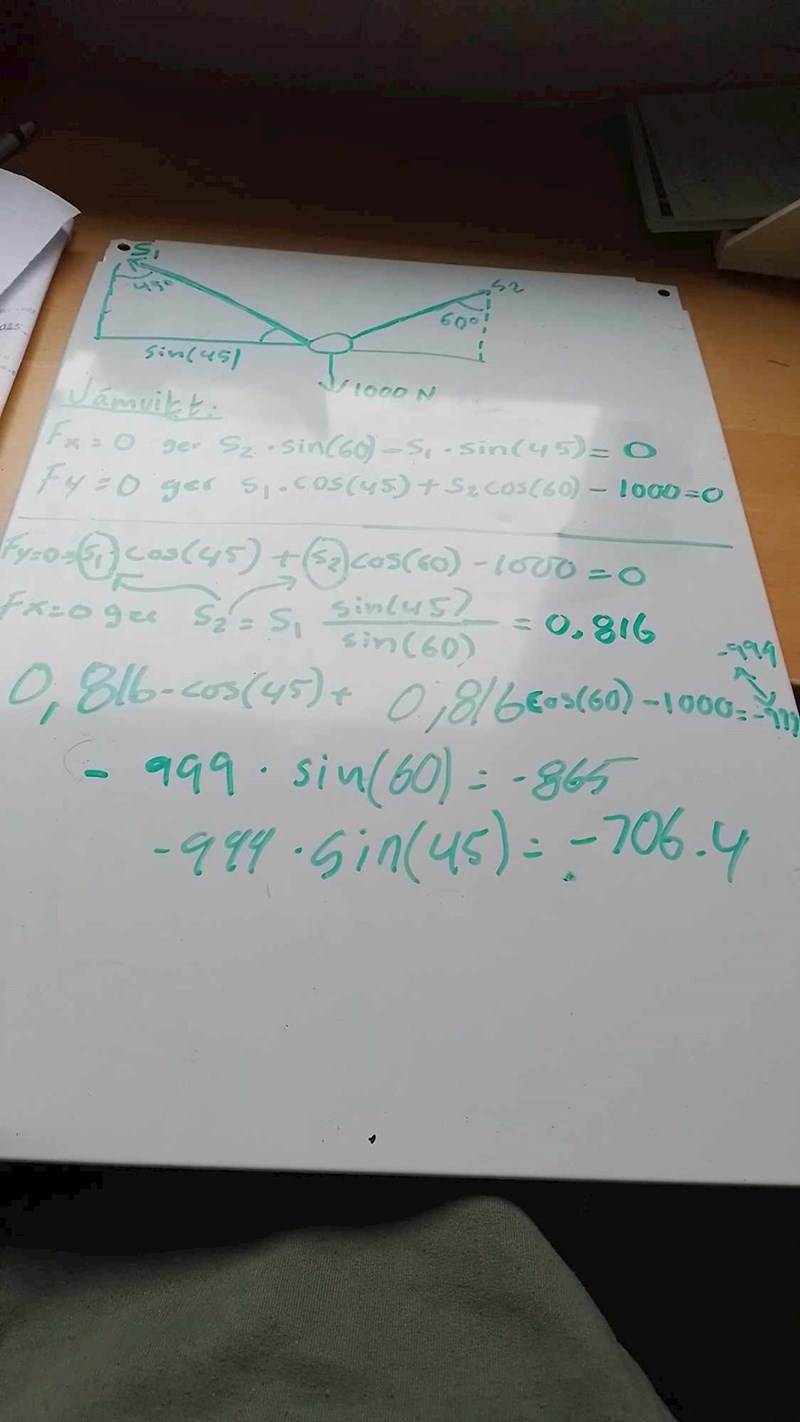 S₁
45°
S2
60°
sin(45)
1000 N
Jámvikt:
Fx=0 ger S₂·sin(60)-S₁·sin(45)=0
Fy=0 ger S₁.cos(45)+S₂cos(60)-1000=0
Fy=0=S₁cos(45)+S₂cos(60)-1000=0
Fx=0 ger S₂=S₁ sin(45)/sin(60) = 0,816
-999
0,816-cos(45)+ 0,816cos(60)-1000=-999
- 999·sin(60)=-865
-999·sin(45)=-706.4